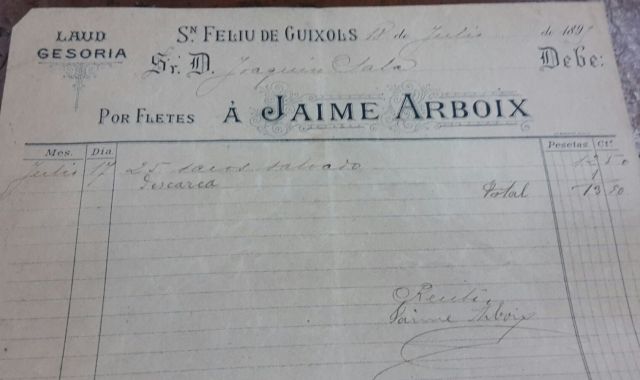 LAUD
GESORIA
Sn. FELIU DE GUIXOLS 18 de Julio de 189
Sr. D. Joaquin Sala Debe:
POR FLETES Á JAIME ARBOIX
Mes. Día. Pesetas Cts.
Julio 17 25 sacos salvado 50
Descarga 1
Total 13 50
Recibí,
Jaime Arboix